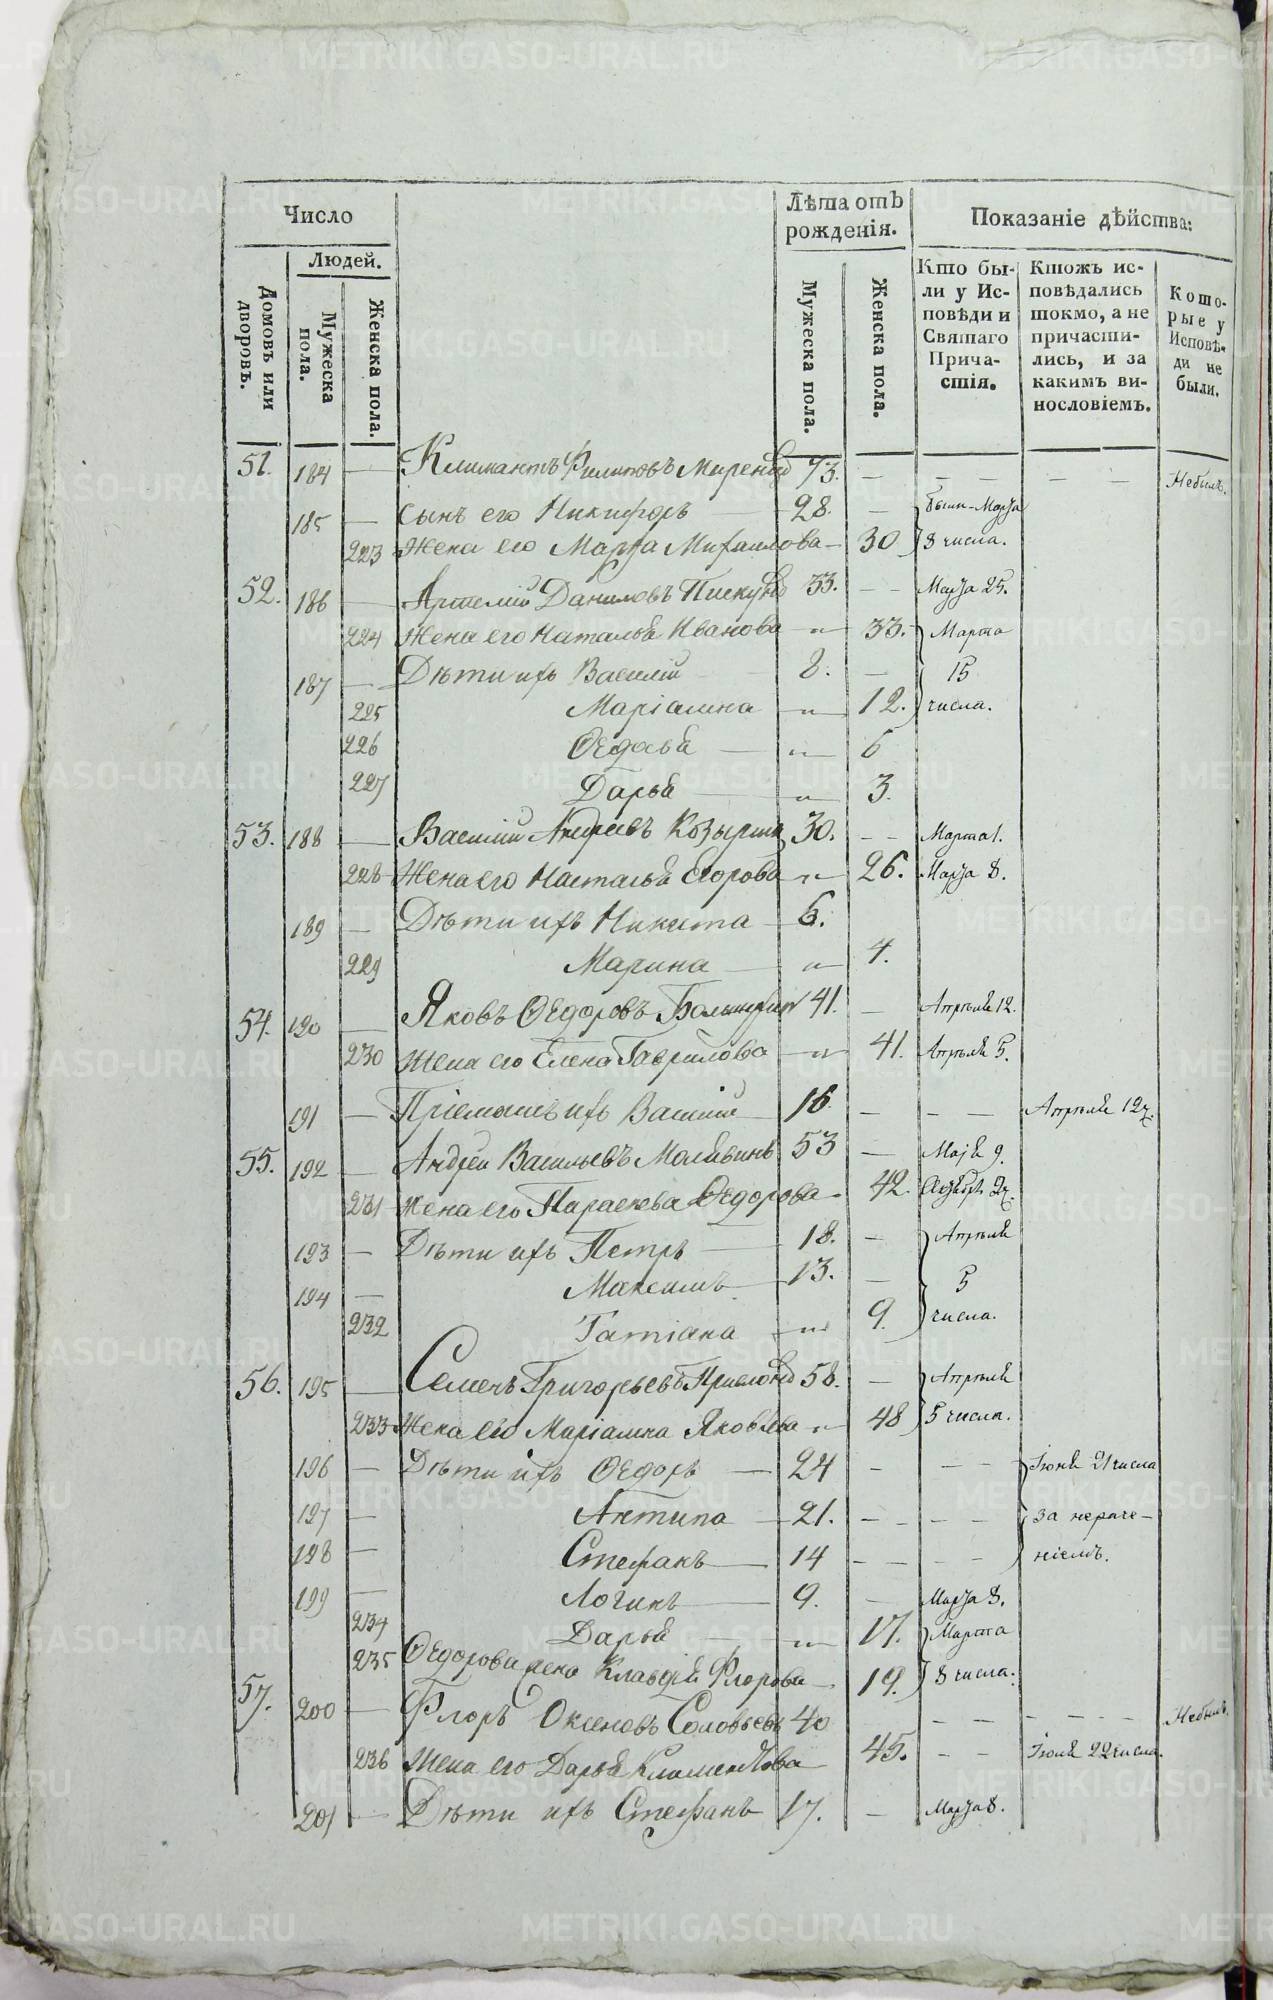 Число
Людей.
Домовъ или дворовъ.
Мужеска пола.
Женска пола.
Лѣта отъ рожденія.
Мужеска пола.
Женска пола.
Показаніе дѣйства:
Кто бы-
ли у Ис-
повѣди и
Святаго
Прича-
стія.
Ктожъ ис-
повѣдались
токмо, а не
причасти-
лись, и за
какимъ ви-
нословіемъ.
Кото-
рые у
Исповѣ-
ди не
были.
51. 184 — Климантъ Филиповъ 73. — — — — — Небылъ.
185 — сынъ его Никифоръ 28. — были Марта
223 Жена его Марѳа Михаилова — 30 8 числа.
52. 186 — Артемій Даниловъ Пискуновъ 33. — — Марта 25.
224 Жена его Наталья Иванова — " — 33. Марта
187 — Дѣти ихъ Василій 8. — 15
225 Маріамна — " — 12. числа.
226 Ѳедосья — " — 6
227 Дарья — " — 3.
53. 188 — Василій Андреевъ Козыринъ 30. — — Марта 1.
228 Жена его Наталья Егорова " 26. Марта 8.
189 — Дѣти ихъ Никита — 6.
229 Марина — " — 4.
54. 190 — Яковъ Ѳедоровъ 41. — Апрѣля 12.
230 Жена его Елена Гаврилова — " — 41. Апрѣля 5.
191 — Пріемышъ ихъ Василій — 16 — — — Апрѣля 12 ч.
55. 192 — Андрей Васильевъ Малявинъ 53 — Маія 9.
231 Жена его Параскева Ѳедорова — 42.
193 — Дѣти ихъ Петръ — 18. — Апрѣля
194 — Максимъ — 13. — 5
232 Татіана — " — 9. числа.
56. 195 — Семенъ Григорьевъ 58. — Апрѣля
233 Жена его Маріамна Яковлева " 48 5 числа.
196 — Дѣти ихъ Ѳедоръ — 24 — — — Іюня 21 числа
197 — Антипа — 21. — — — — за нераче-
198 — Стефанъ — 14 — — — — ніемъ.
199 — Логинъ — 9. — Марта 8.
234 Дарья — " — 17. Марта
235 Ѳедорова жена Клавдія Флорова — 19. 8 числа.
57. 200 — Флоръ Оксеновъ Соловьевъ 40 — — — — — Небылъ.
236 Жена его Дарья Климентова 45. — — Іюля 22 числа.
201 — Дѣти ихъ Стефанъ 17. — Марта 8.
METRIKI.GASO-URAL.RU